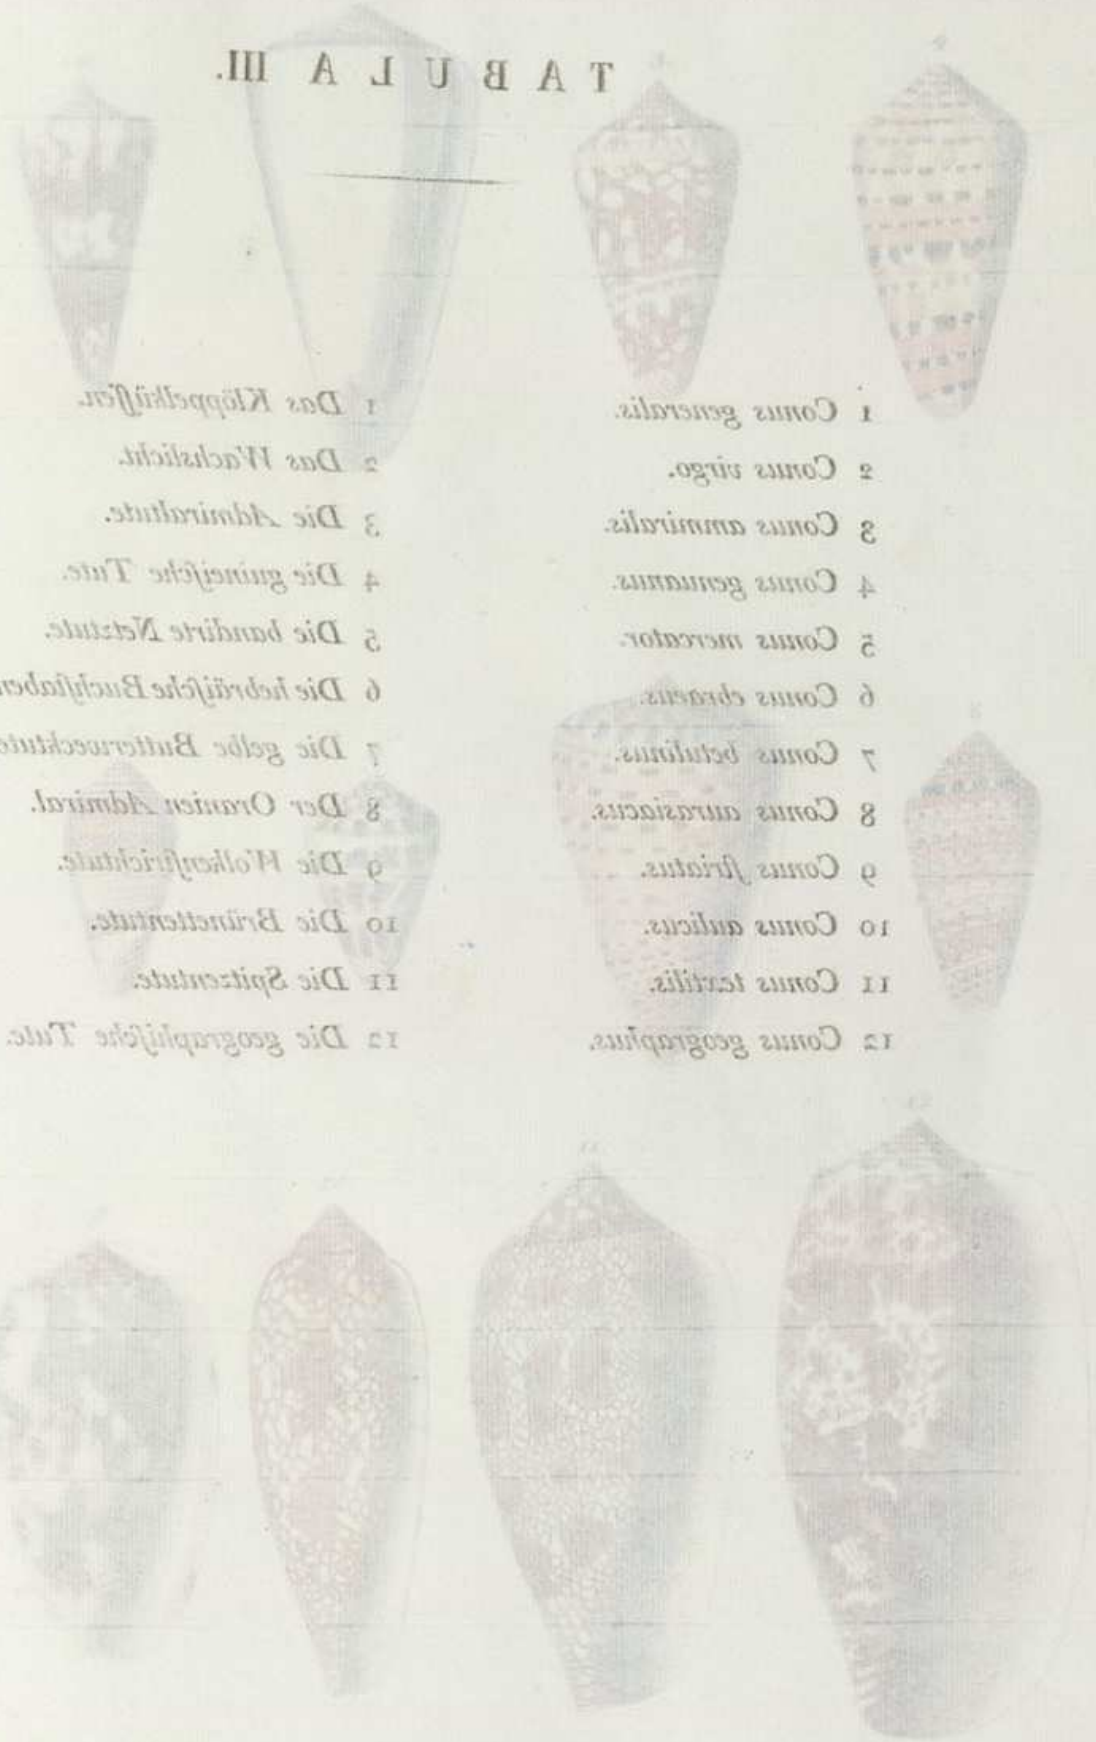 TABULA III.
1 Conus generalis.
2 Conus virgo.
3 Conus ammiralis.
4 Conus genuanus.
5 Conus mercator.
6 Conus ebraeus.
7 Conus betulinus.
8 Conus aurasiacus.
9 Conus ſtriatus.
10 Conus aulicus.
11 Conus textilis.
12 Conus geographus.
1 Das Klöppelküſſen.
2 Das Wachslicht.
3 Die Admiraltute.
4 Die guineiſche Tute.
5 Die bandirte Netztute.
6 Die hebräiſche Buchſtaben
7 Die gelbe Butterwecktute
8 Der Oranien Admiral.
9 Die Wolkenſtrichtute.
10 Die Brünettentute.
11 Die Spitzentute.
12 Die geographiſche Tute.